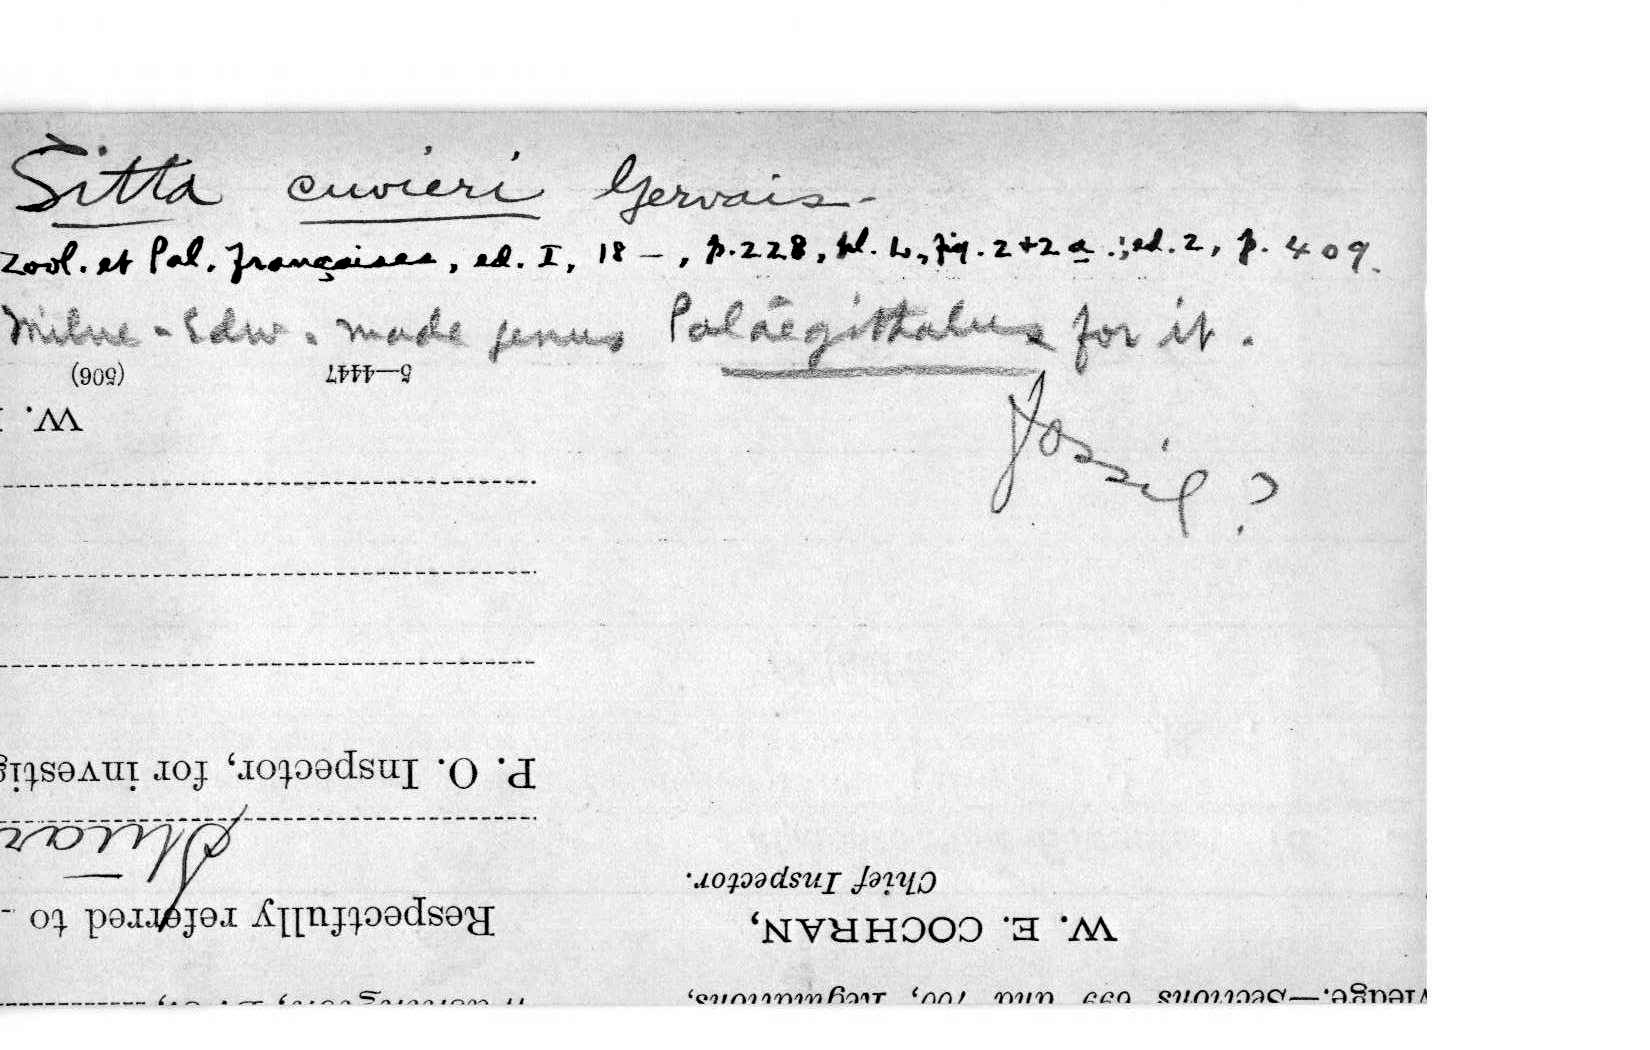 Sitta cuvieri Gervais.
Zool. et Pal. françaises, ed. I, 18–, p. 228, pl. L, fig. 2+2a.; ed. 2, p. 409.
Milne-Edw. made genus Palaegithalus for it.
Fossil?
(506) 5—4447
W.
P. O. Inspector, for investig
Respectfully referred to
Chief Inspector.
W. E. COCHRAN,
Sections 699 and 700, Regulations,